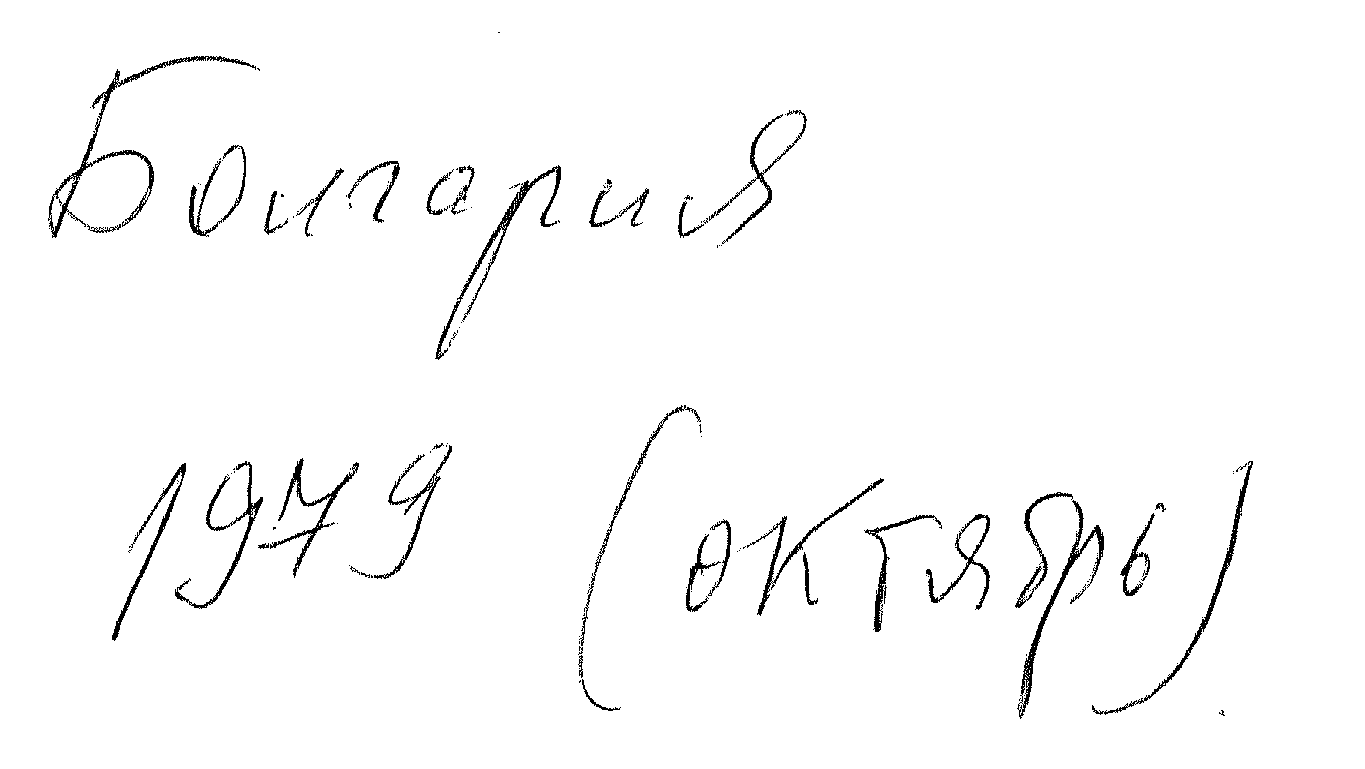 Болгария
1979 (октябрь)